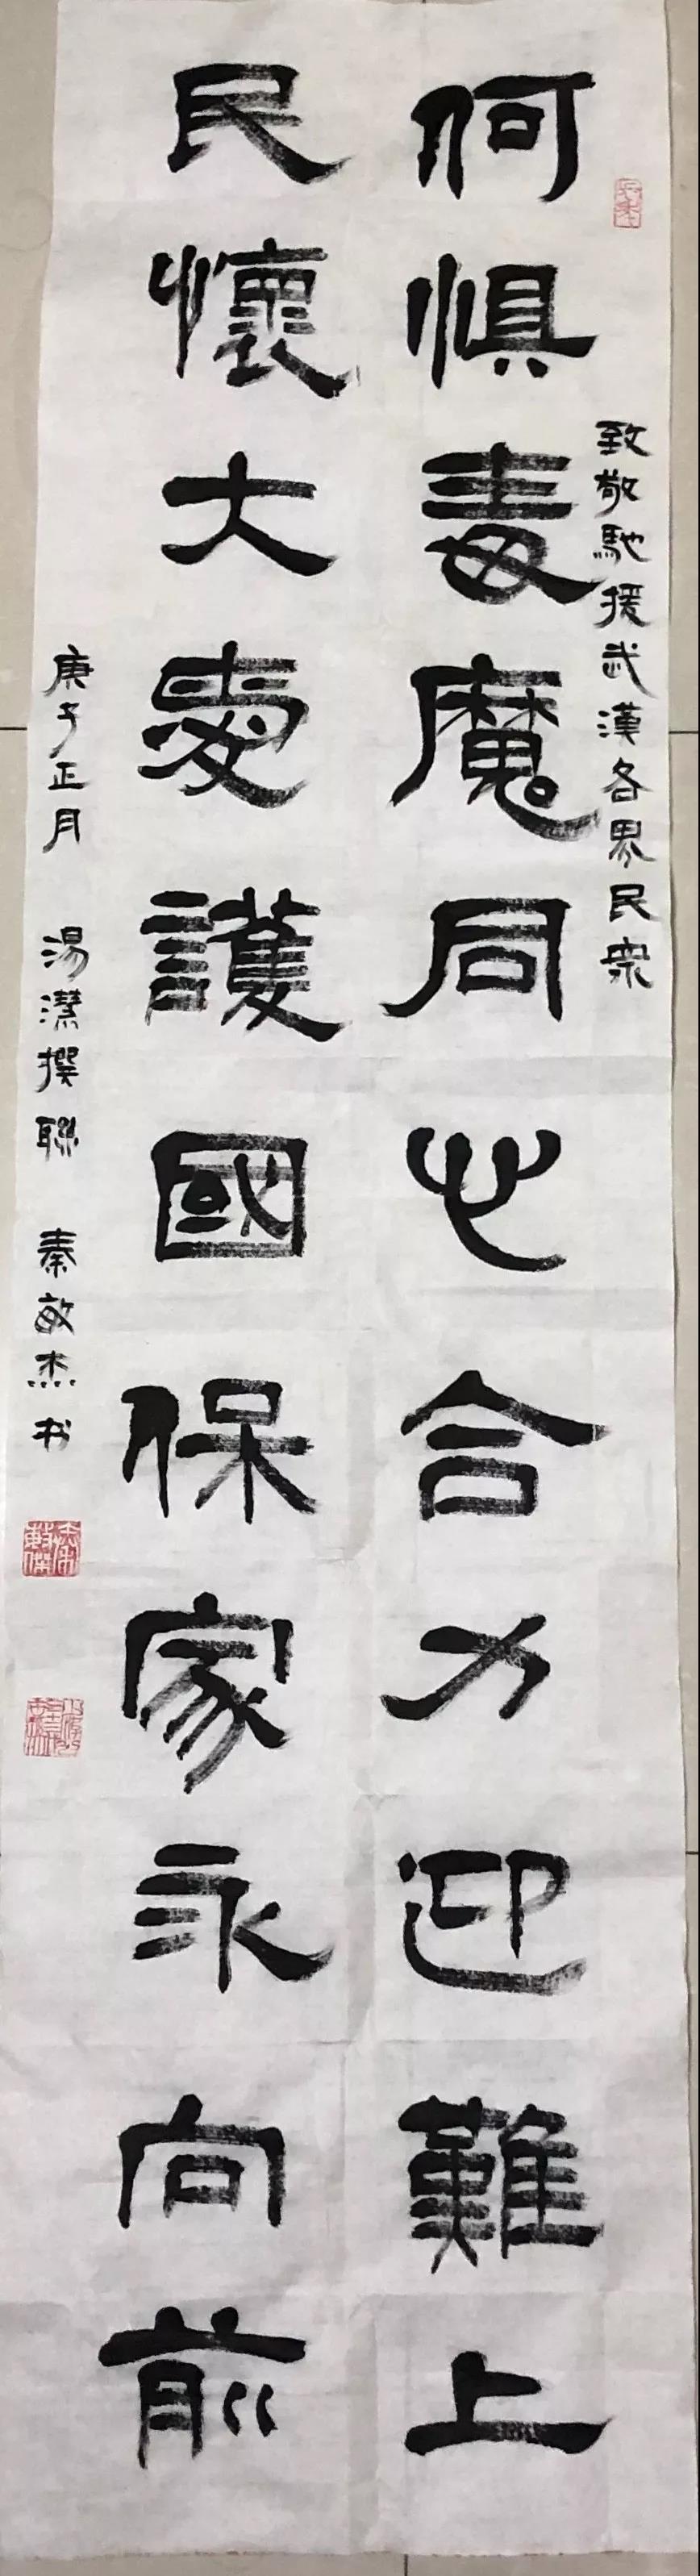 致敬馳援武漢各界民衆
何惧毒魔同心合力迎難上
民懷大愛護國保家永向前
庚子正月 湯潔撰聯 秦敏杰书